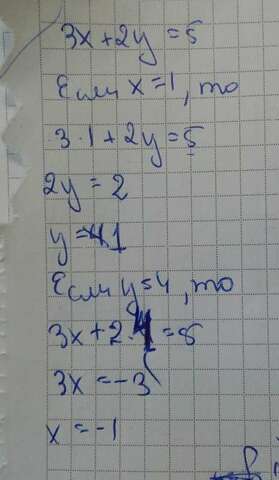 3x + 2y = 5
Если x = 1, то
3 · 1 + 2y = 5
2y = 2
y = 1
Если y = 4, то
3x + 2 · 4 = 5
3x = -3
x = -1